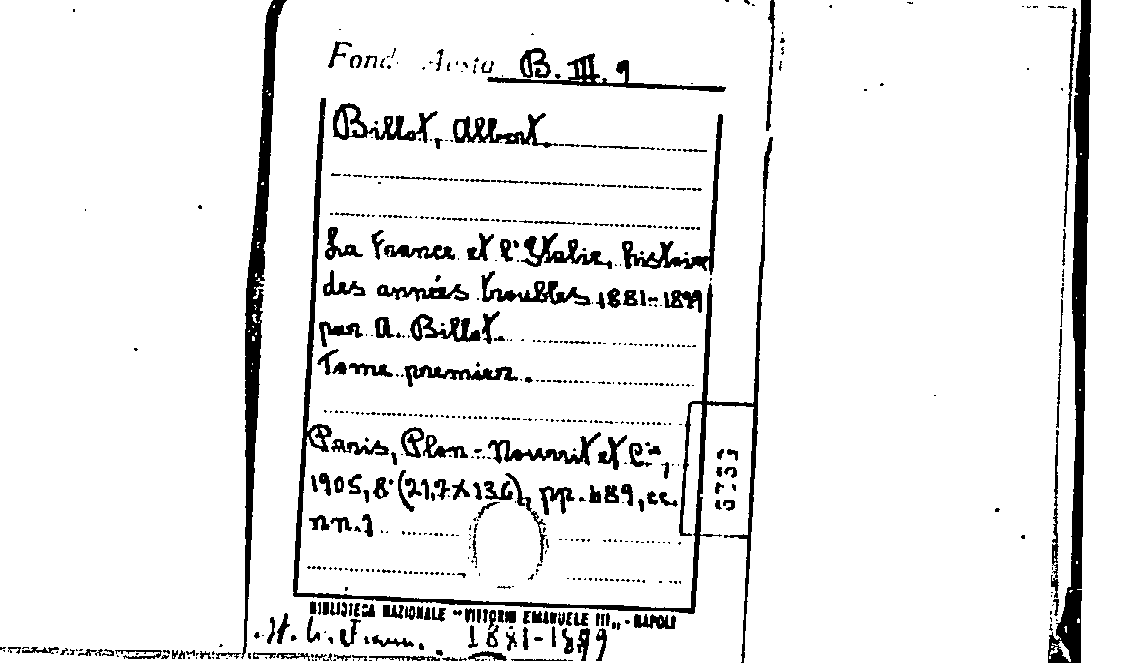 Fond. Aosta B. III. 9
Billot, Albert.
La France et l'Italie, histoire
des années troubles 1881-1899
par A. Billot.
Tome premier.
Paris, Plon-Nourrit et C.ie,
1905, 8° (21,7 x 13,6), pp. 489, cc.
nn. 1
BIBLIOTECA NAZIONALE "VITTORIO EMANUELE III" - NAPOLI
1881-1899